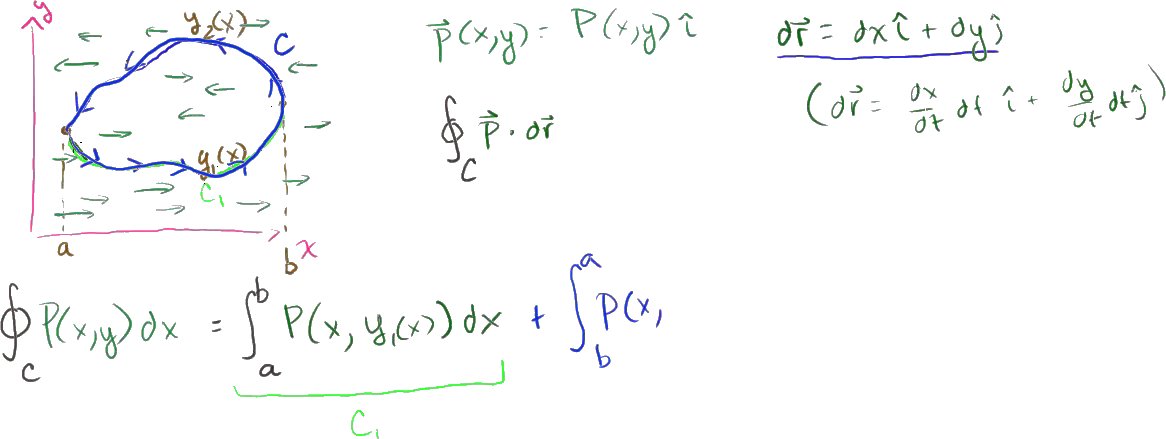 y
y₂(x)
C
y₁(x)
C₁
a
b
x
P⃗(x,y) = P(x,y) î
∮_C P⃗ · dr⃗
dr⃗ = dx î + dy ĵ
(dr⃗ = dx/dt dt î + dy/dt dt ĵ)
∮_C P(x,y) dx = ∫_a^b P(x, y₁(x)) dx + ∫_b^a P(x,
C₁